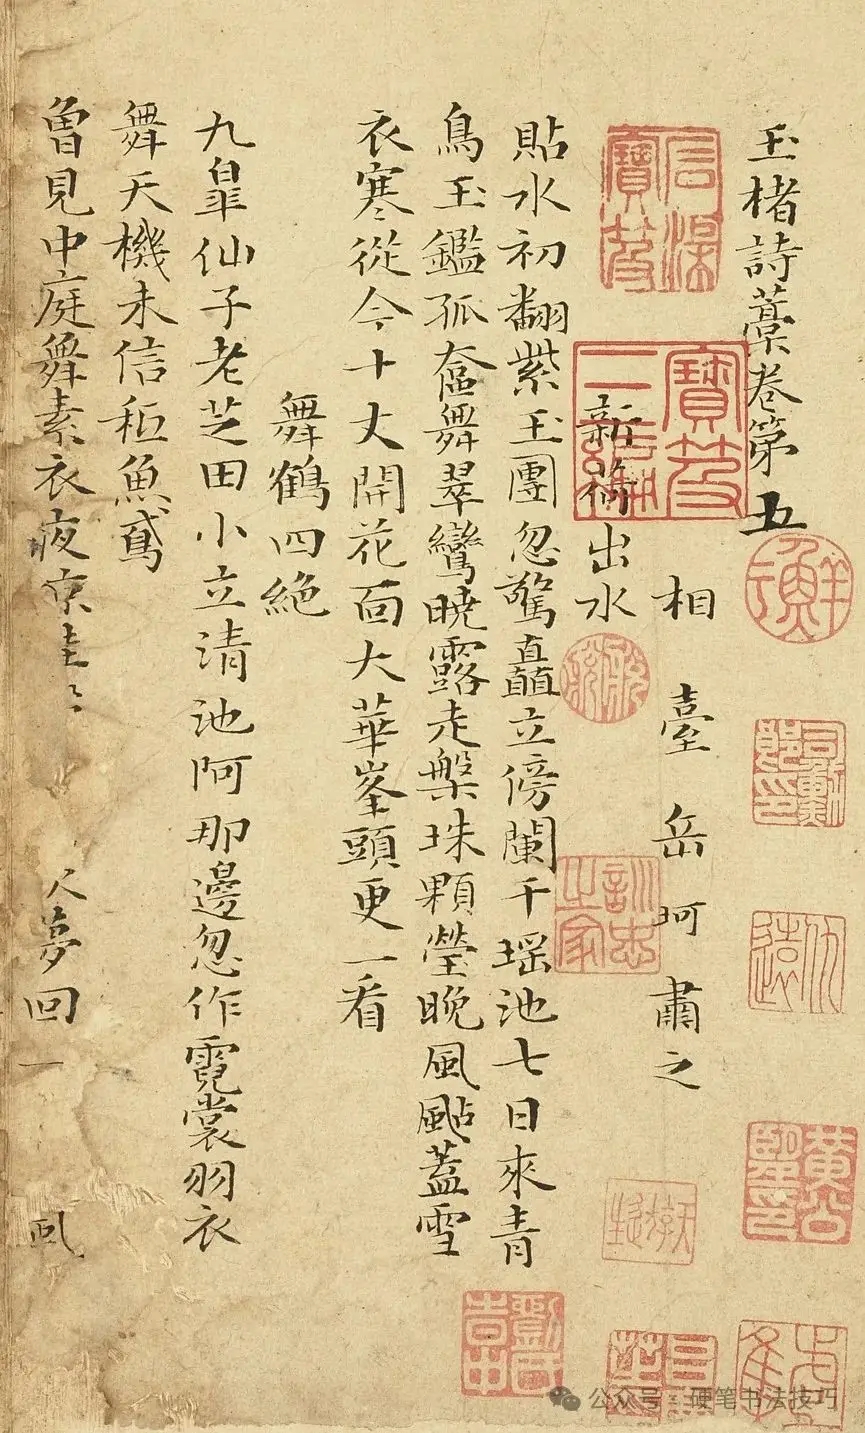 玉楮詩藁卷第五
相臺岳珂肅之
新荷出水
貼水初翻紫玉團忽驚矗立傍闌干瑶池七日來青
鳥玉鑑孤奩舞翠鸞曉露走槃珠顆瑩晚風颭蓋雪
衣寒從今十丈開花面大華峯頭更一看
舞鶴四絶
九臯仙子老芝田小立清池阿那邊忽作霓裳羽衣
舞天機未信秪魚鳶
曾見中庭舞素衣夜
人夢回一
公众号·硬笔书法技巧